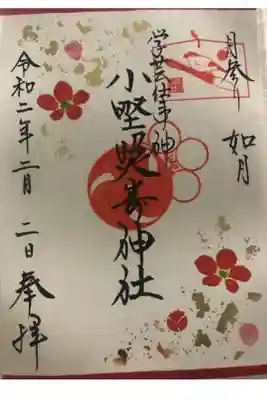 月参り 如月
学芸仕事神
小野照崎神社
令和二年二月二日奉拝